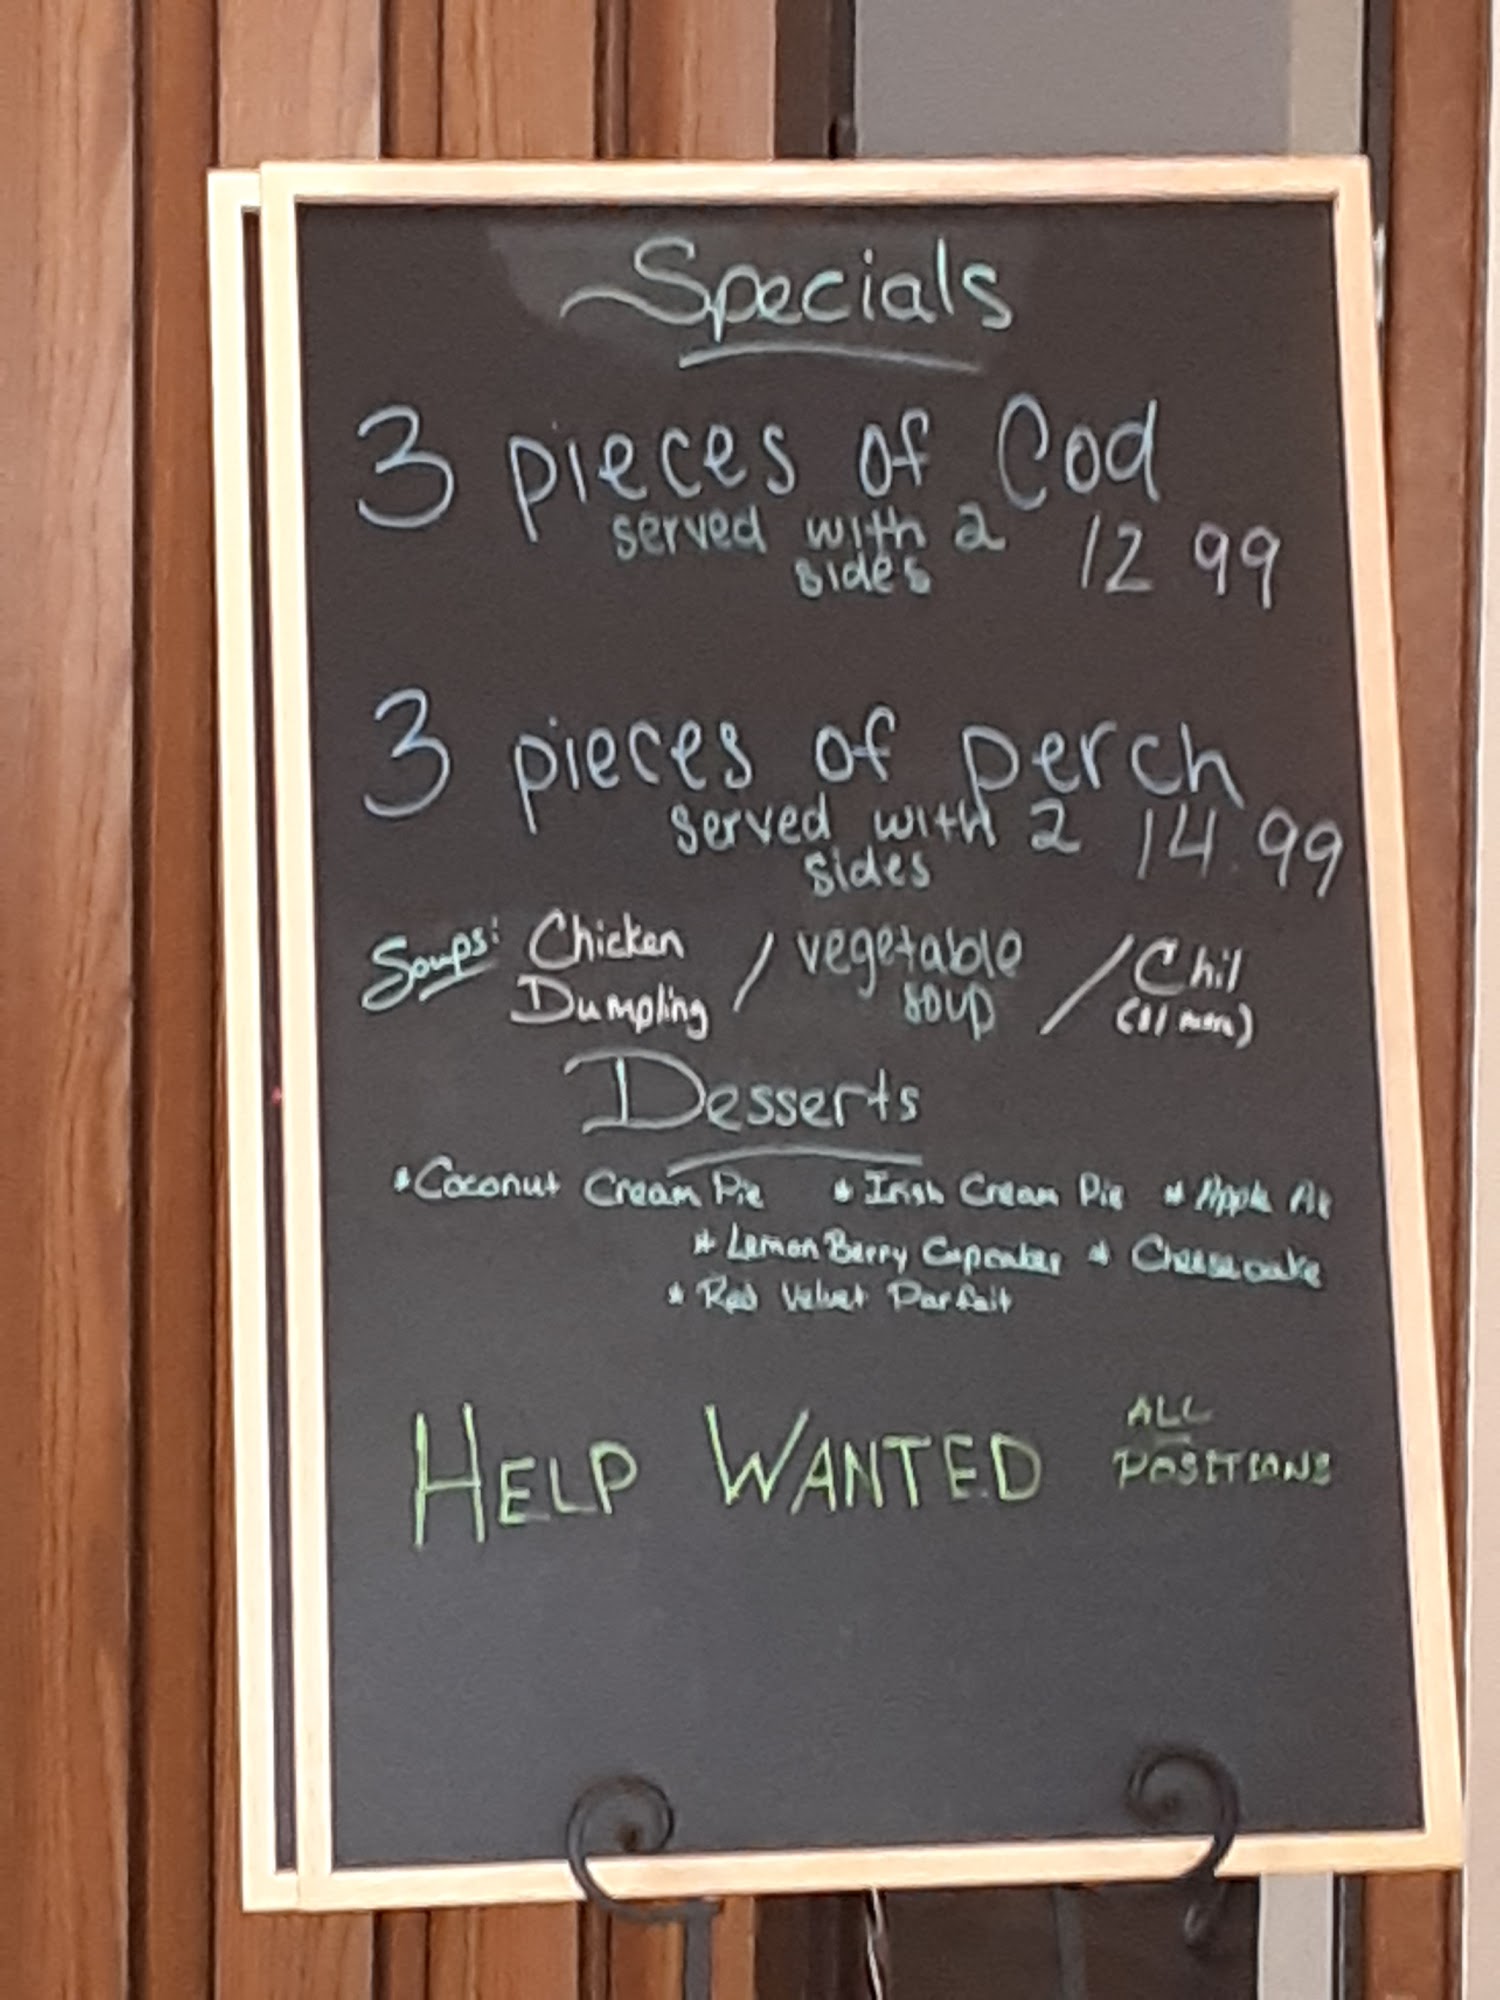 Specials
3 pieces of Cod
served with 2 12 99
sides
3 pieces of perch
served with 2 14.99
sides
Soups: Chicken / vegetable / Chil
Dumpling soup ($1 more)
Desserts
*Coconut Cream Pie * Irish Cream Pie * Apple
* Lemon Berry Cupcakes * Cheesecake
* Red Velvet Parfait
HELP WANTED ALL
POSITIONS